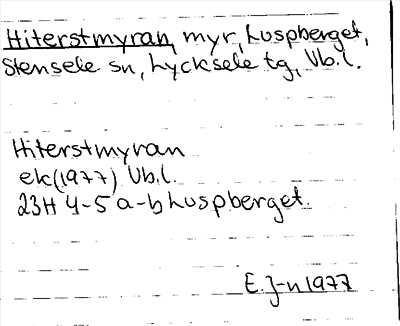 Hiterstmyran, myr, Luspberget,
Stensele sn, Lycksele tg, Vb.l.
Hiterstmyran
ek(1977) Vb.l.
23H 4-5 a-b Luspberget.
E. J-n 1977